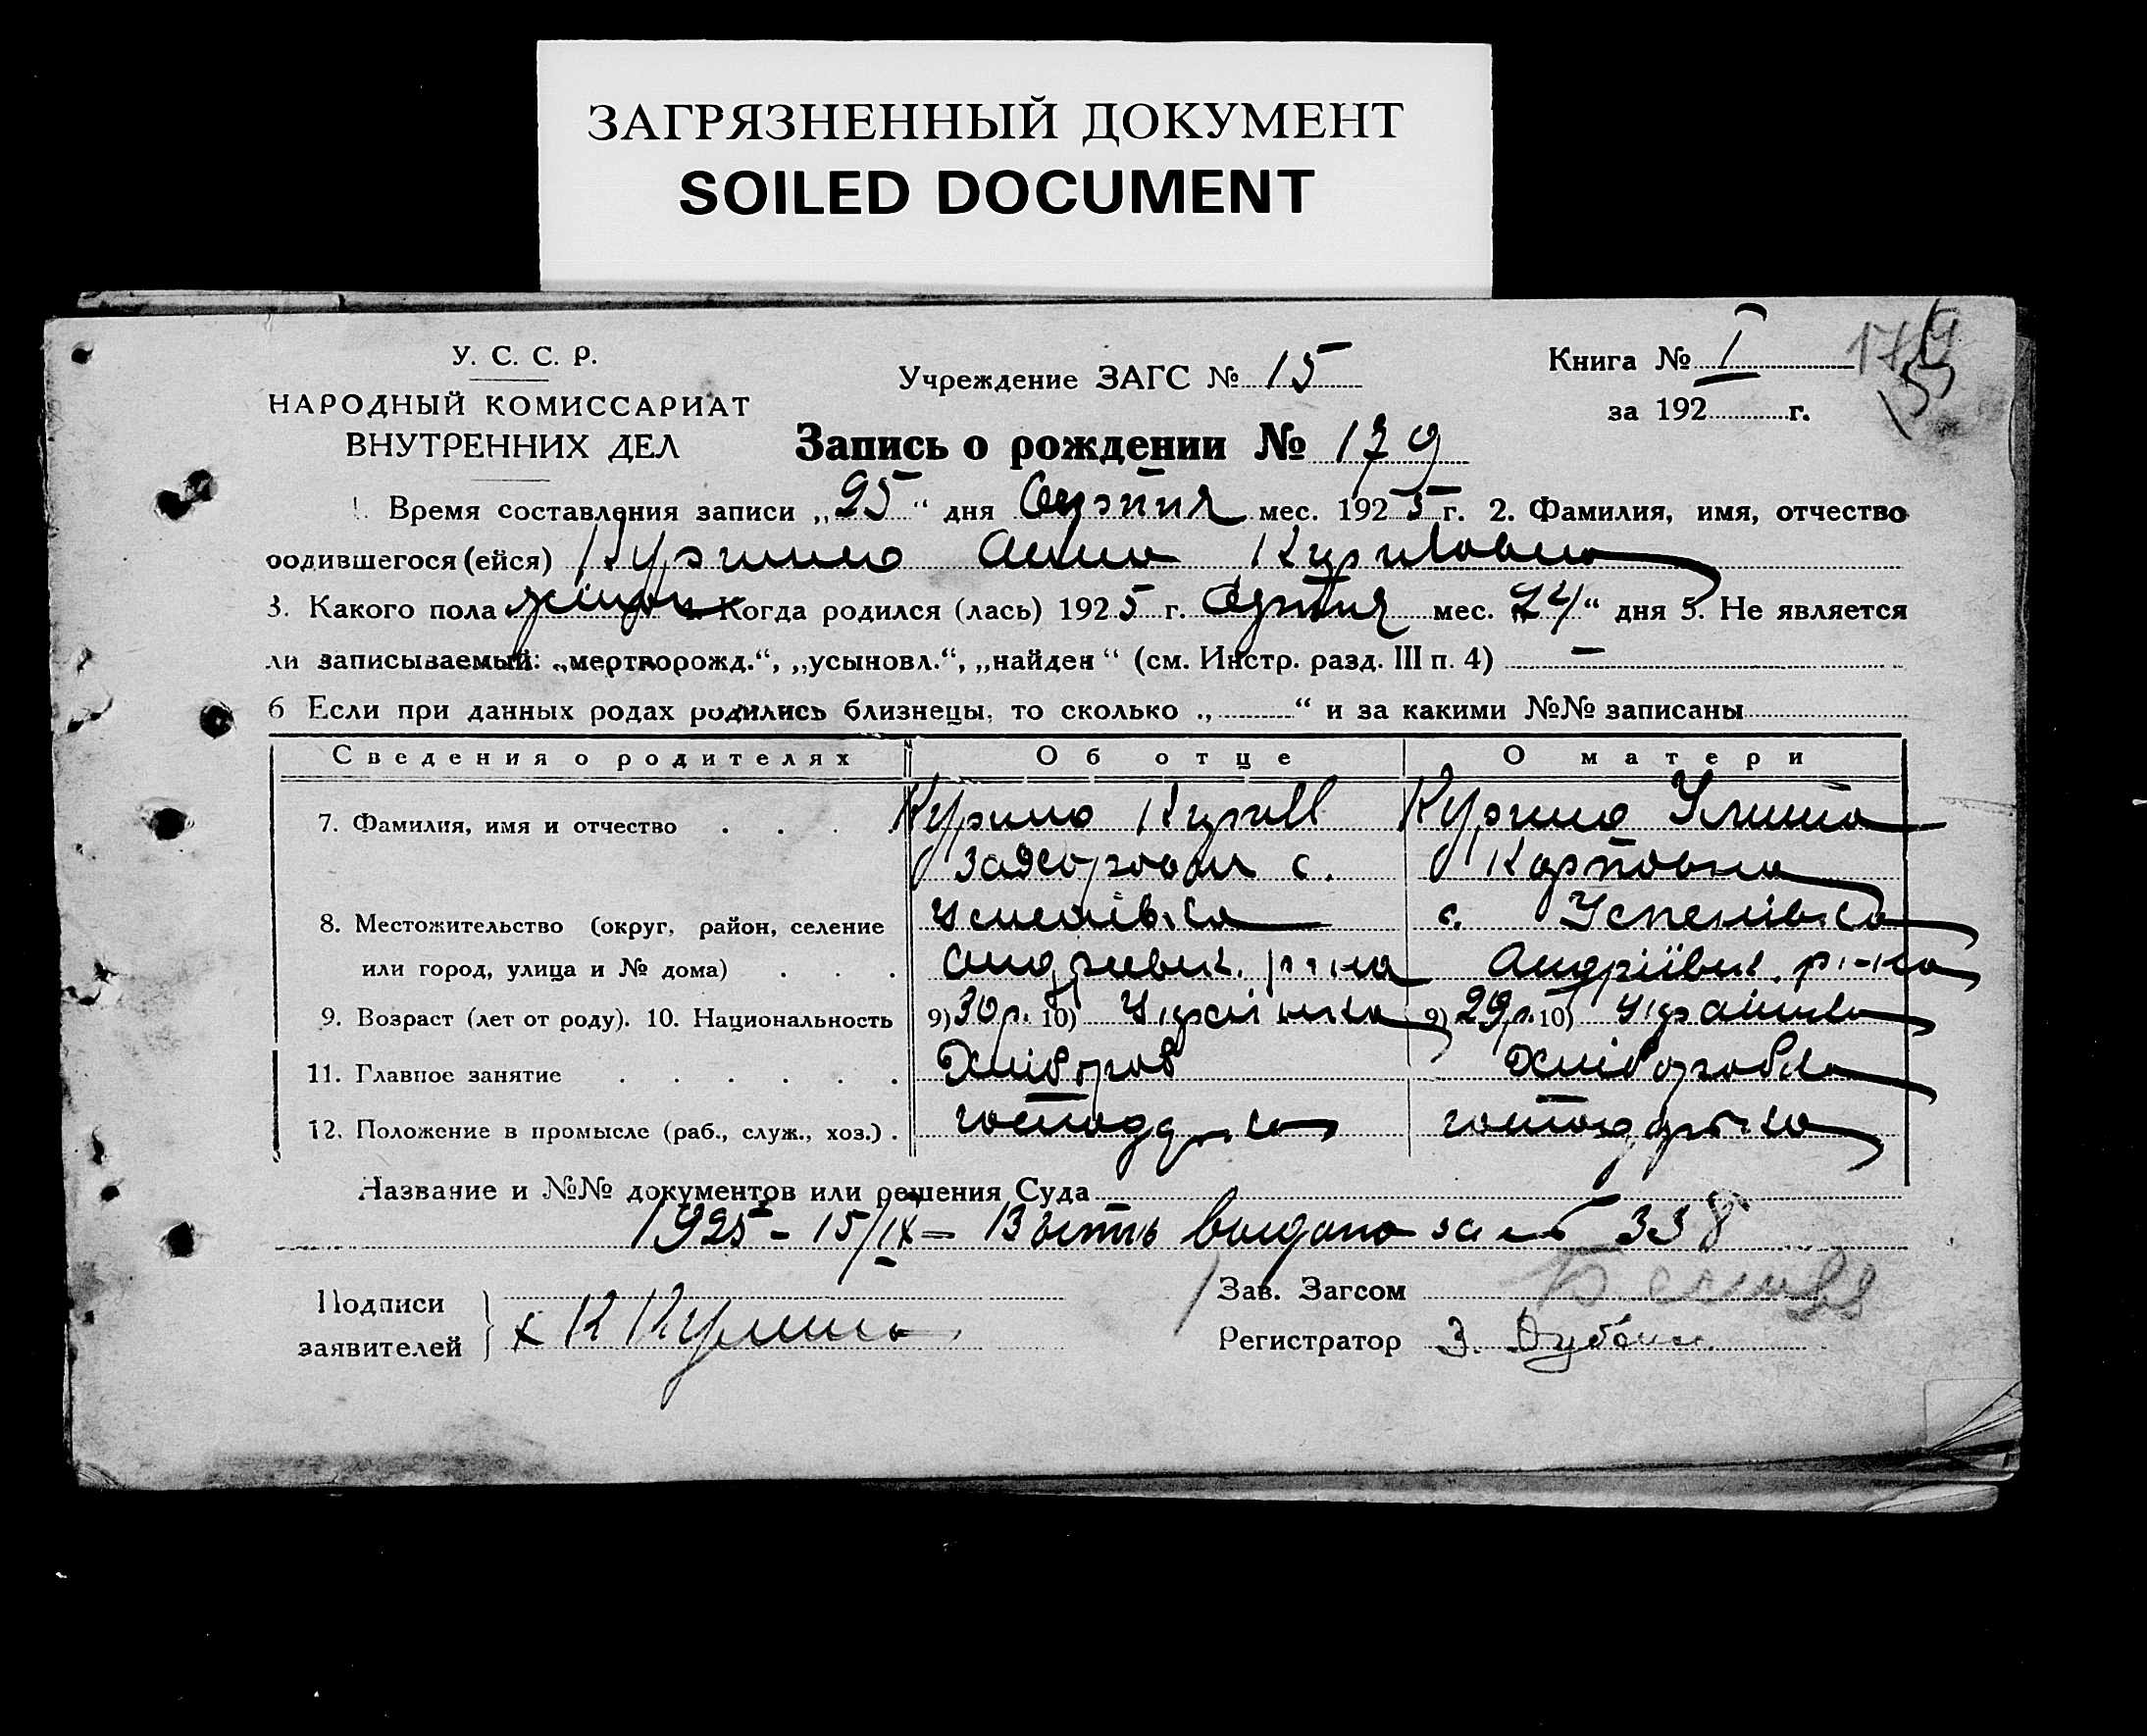 ЗАГРЯЗНЕННЫЙ ДОКУМЕНТ
SOILED DOCUMENT
У. С. С. Р.
НАРОДНЫЙ КОМИССАРИАТ
ВНУТРЕННИХ ДЕЛ
Учреждение ЗАГС № 15
Книга № I
179
за 192 г.
Запись о рождении № 179
Время составления записи „25“ дня Серпня мес. 1925 г. 2. Фамилия, имя, отчество
родившегося (ейся) Курило Анна Кириловна
3. Какого пола жіноч. Когда родился (лась) 1925 г. Серпня мес. 24“ дня 5. Не является
ли записываемый: „мертворожд.“, „усыновл.“, „найден“ (см. Инстр. разд. III п. 4) —
6 Если при данных родах родились близнецы, то сколько „ “ и за какими №№ записаны
Сведения о родителях Об отце О матери
7. Фамилия, имя и отчество . . . Курило Кирилл Курило Улита
Захорович с. Карповна
8. Местожительство (округ, район, селение Успенівка с. Успенівка
или город, улица и № дома) . . . Андріевск. р-на Андріївск. р-на
9. Возраст (лет от роду). 10. Национальность 9) 30 р. 10) Українка 9) 29 р. 10) Українка
11. Главное занятие . . . . . . Хлібороб Хліборобка
12. Положение в промысле (раб., служ., хоз.) .
Название и №№ документов или решения Суда
1925 - 15/IX = Витяг видано за № 338
Подписи
заявителей
х К Курило
Зав. Загсом
Регистратор З.